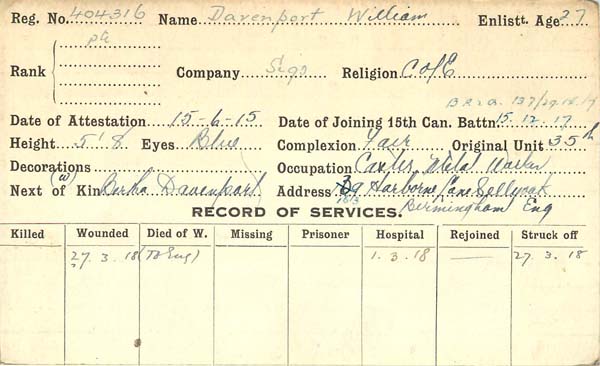 Reg. No. 404316 Name Davenport William Enlistt. Age 27
Rank { pte
Company Sigs Religion C of E
B.R.2.a. 137/29.12.17
Date of Attestation 15-6-15 Date of Joining 15th Can. Battn. 15.12.17
Height 5'8 Eyes Blue Complexion Fair Original Unit 35th
Decorations Occupation Metal Worker
Next of Kin (W) Bertha Davenport Address Harborne Lane Sellyoak
RECORD OF SERVICES. Birmingham Eng
Killed Wounded Died of W. Missing Prisoner Hospital Rejoined Struck off
27.3.18 (To Eng) 1.3.18 — 27.3.18